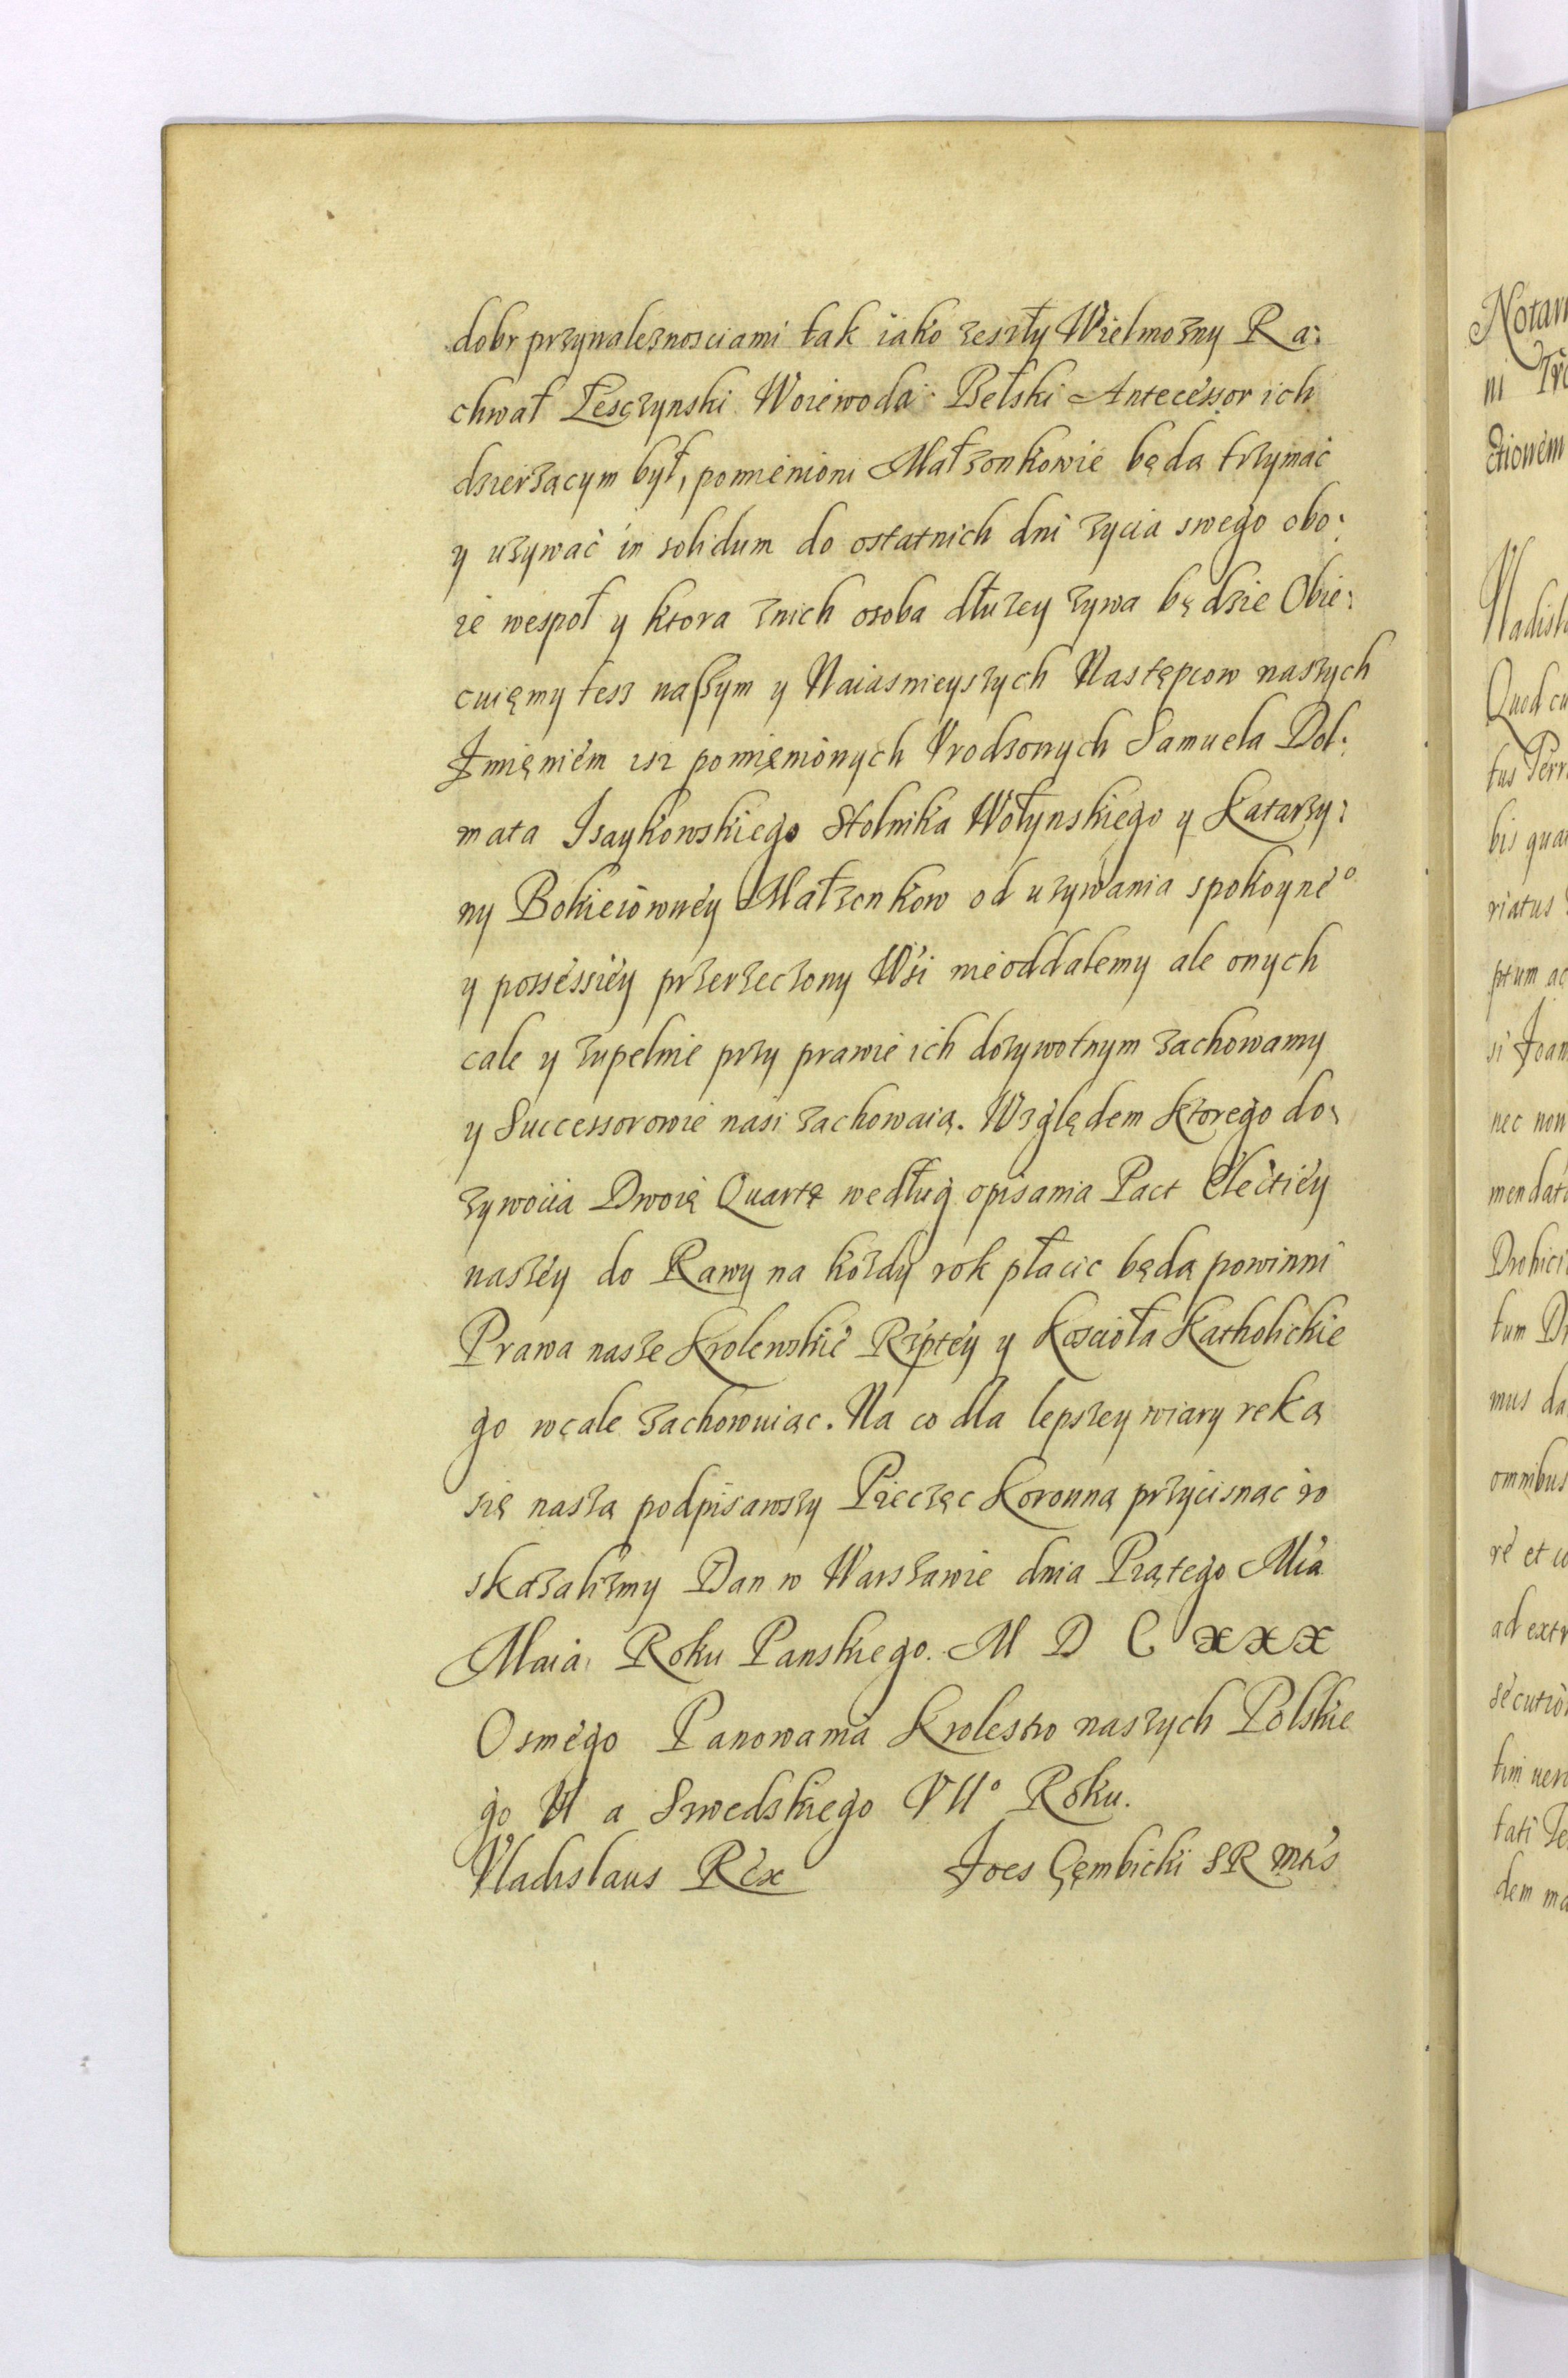 dobr przynaleznosciami tak iako zeszły Wielmozny Ra:
chwał Lesczynski Woiewoda Bełski Antecessor ich
dzierzacym był, pomienioni Małzonkowie będą trzymac
y uzywac in solidum do ostatnich dni zycia swego obo:
ie wespoł y ktora znich osoba dłuzey zywa będzie Obie:
cuięmy tesz naszym y Naiasnieyszych Następcow naszych
Imięniem isz pomięnionych Vrodzonych Samuela Dol:
mata Isaykowskiego Stolnika Wołynskiego y Katarzy:
ny Bokieiowney Małzonkow od uzywania spokoyne°
y possessiey przerzeczony Wsi nieoddalemy ale onych
cale y zupelnie przy prawie ich dozywotnym zachowamy
y Successorowie nasi zachowaią. Względem ktorego do:
zywocia Dwoię Quartę według opisania Pact Electiey
naszey do Rawy na kozdy rok płacic będą powinni
Prawa nasze Krolewskie Rzptey y Koscioła Katholickie
go wcale zachowuiąc. Na co dla lepszey wiary ręką
się naszą podpisawszy Pieczęc Koronną przycisnąc ro
skazalismy Dan w Warszawie dnia Piątego Mia
Maia Roku Panskiego. M D C XXX
Osmego Panowania Krolestw naszych Polskie
go VI a Szwedskiego VII° Roku.
Vladislaus Rex Joes Gęmbicki SR Mtis
Notar
ni
ctionem
Vladisl
Quod cu
tus Terr
bis qua
riatus
ptum ac
si Joan
nec non
mendat
Drohici
tum D
mus da
omnibus
re et
ad extr
secutio
tim
tati Te
dem ma